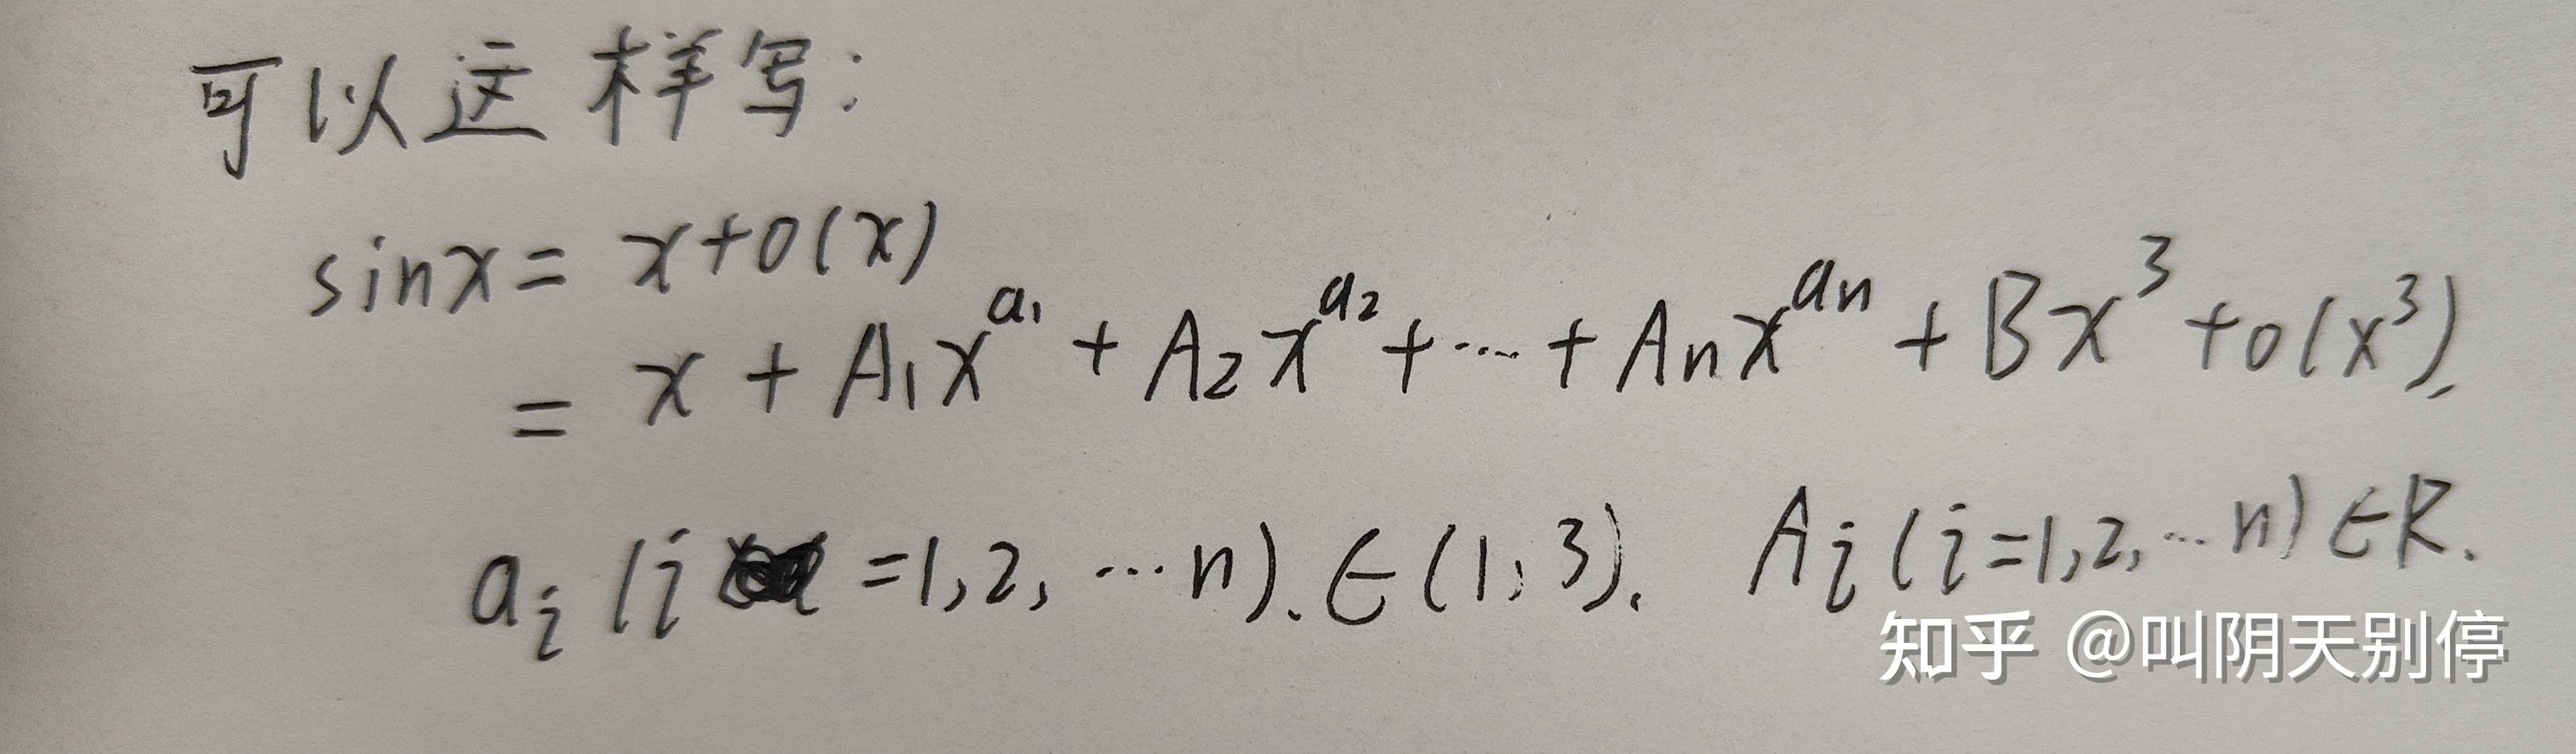 可以这样写:
sinx = x+o(x)
= x + A₁x^a₁ + A₂x^a₂ + ··· + Anx^an + Bx³ + o(x³),
ai (i =1,2, ···n). ∈ (1,3). Ai (i=1,2, ··· n) ∈R.
知乎 @叫阴天别停